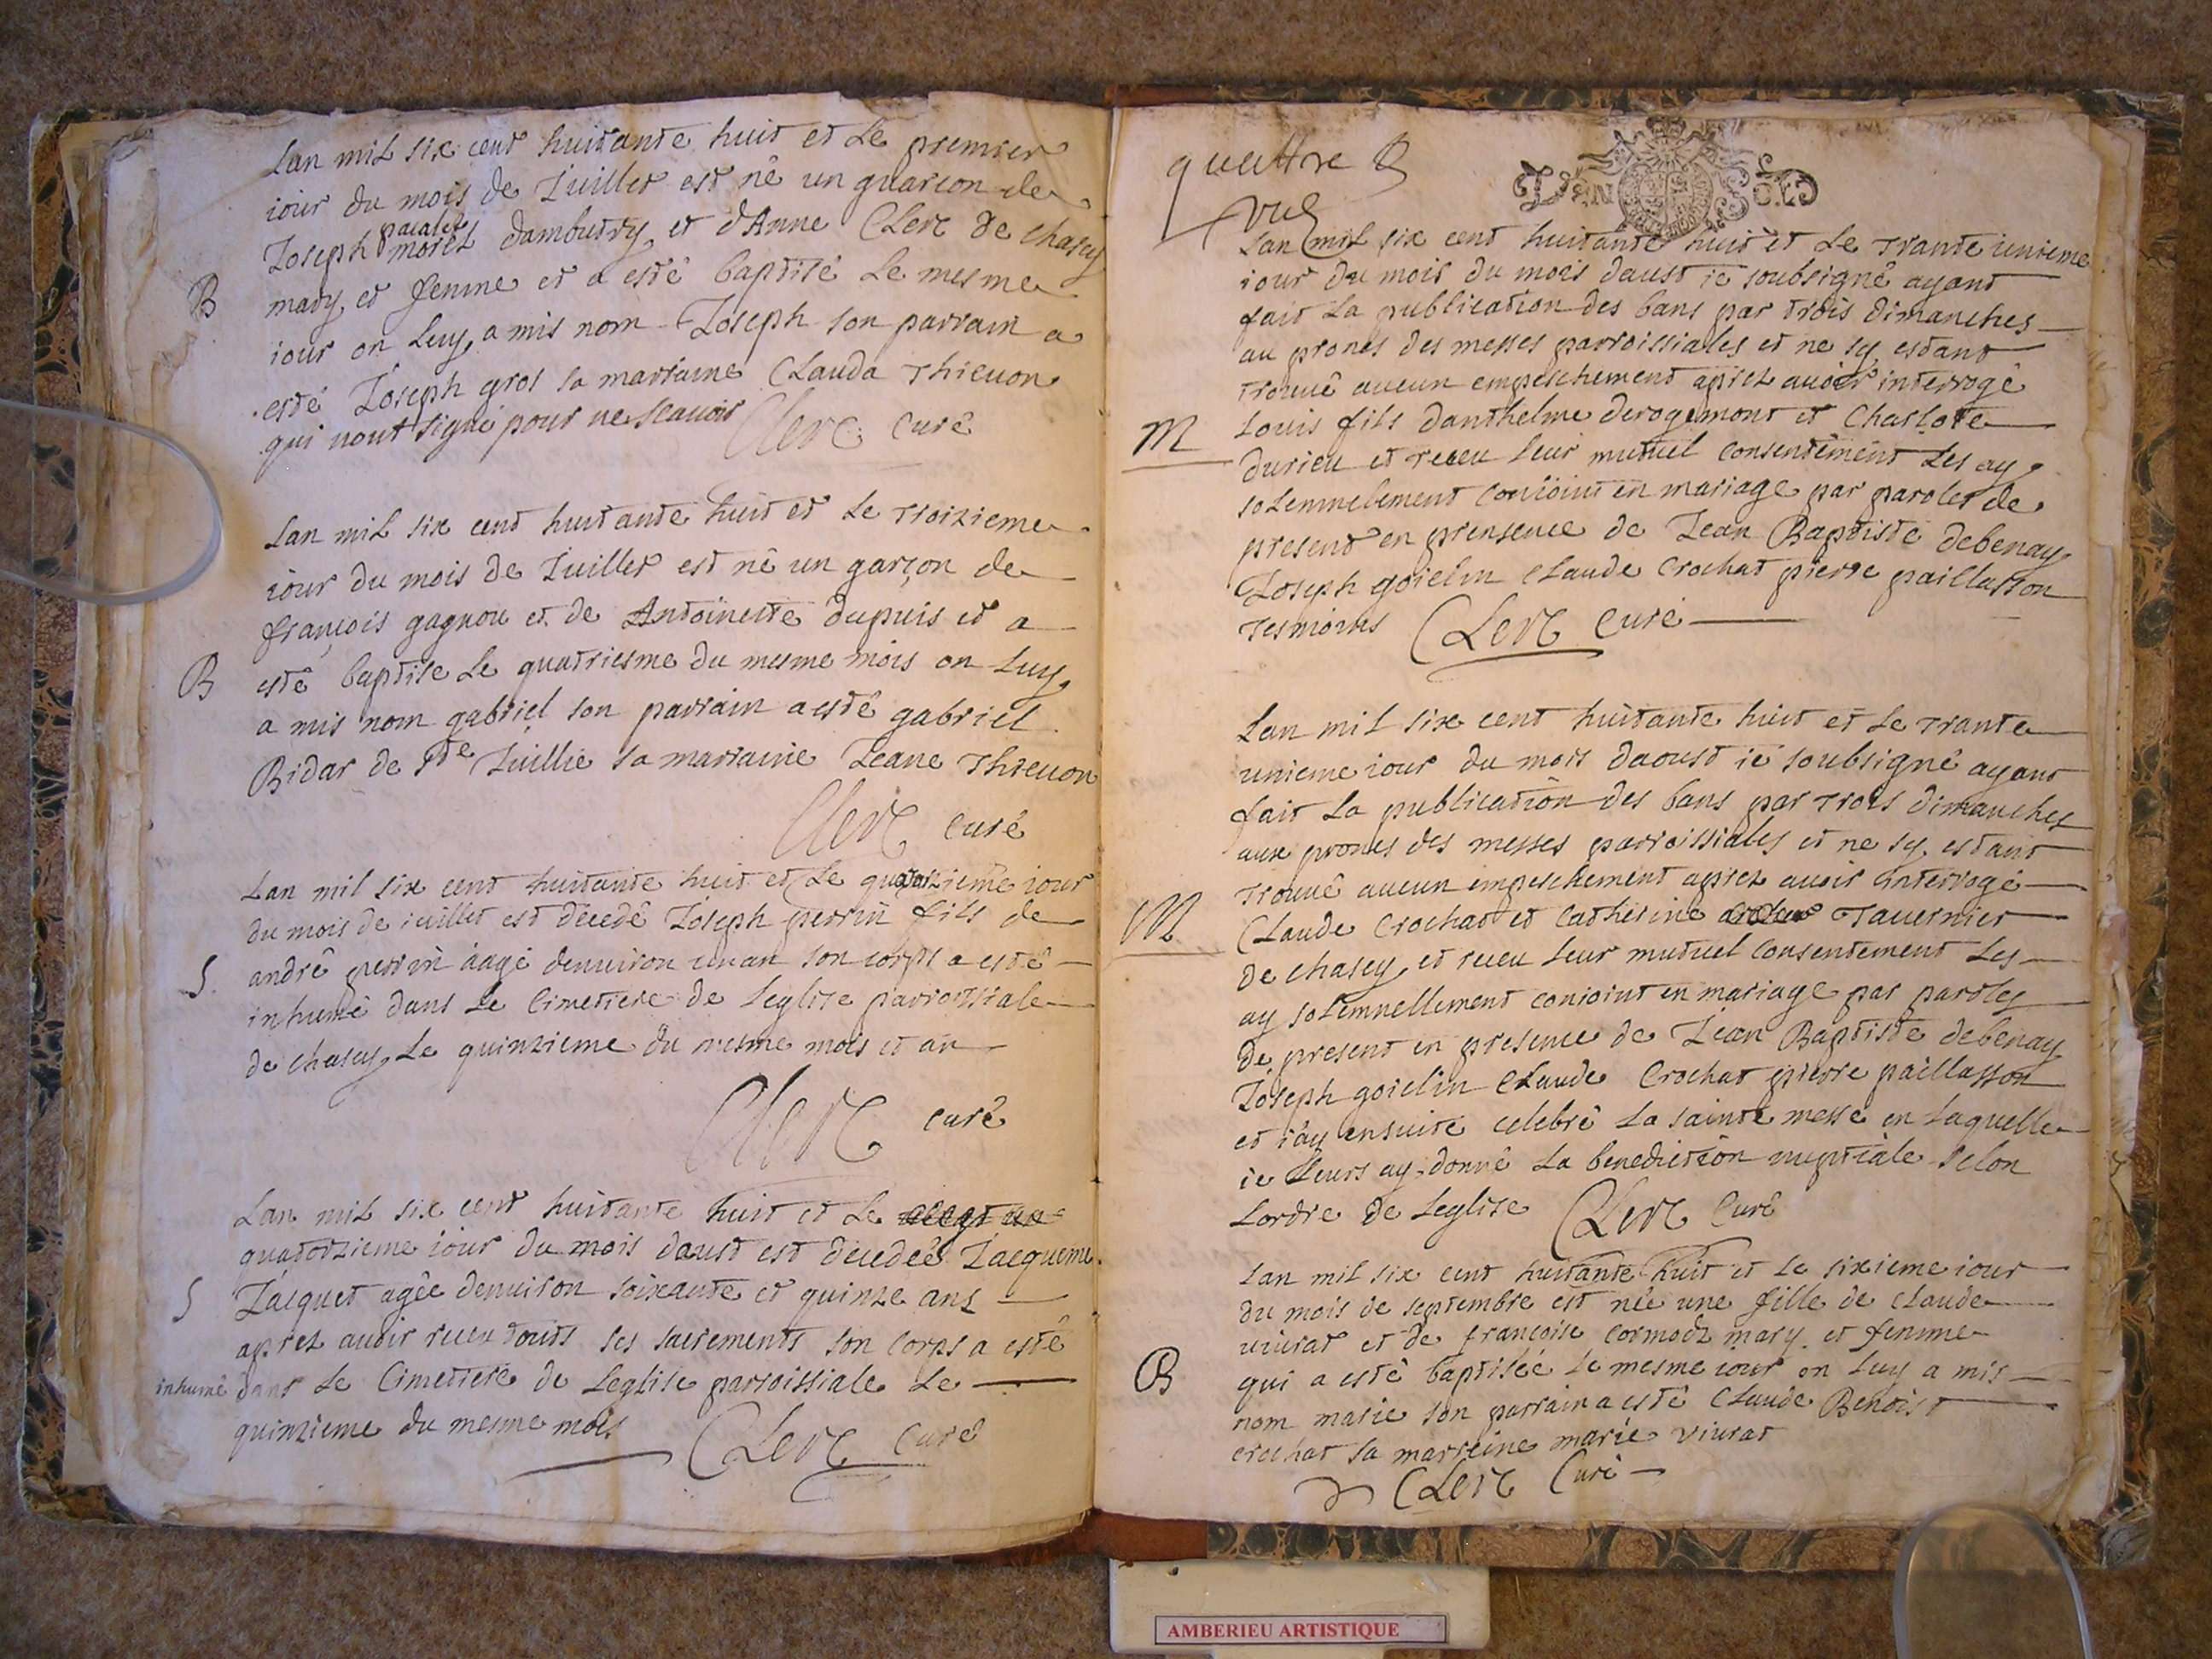 Lan mil six cent huitante huit et Le premier
iour du mois de Iuillet est né un guarcon de
pacalet
Ioseph morel dambutry et dAnne Clerc de chasey
B mary et femme et a esté baptisé Le mesme
iour on Luy a mis nom Ioseph son parrain a
esté Ioseph gros sa marraine Clauda Thieuon
qui nont signé pour ne scauoir Clerc curé
Lan mil six cent huitante huit et Le troizieme
iour du mois de Iuillet est né un garçon de
françois gagnou et de Antoinette dupuis et a
B esté baptise Le quatriesme du mesme mois on Luy
a mis nom gabriel son parrain a esté gabriel
Bidar de Ste Iuillie sa marraine Ieane Thieuon
Clerc curé
Lan mil six cent huitante huit et Le quatorzieme iour
du mois de iuillet est décedé Ioseph perrin fils de
S. andré perrin aagé denuiron un an son corps a esté
inhumé dans Le Cimetiere de Leglise parroissiale
de chasey Le quinzieme du mesme mois et an
Clerc curé
Lan mil six cent huitante huit et Le
quatorzieme iour du mois daust est decedeé Iacqueme
S Iacquet agée denuiron soixante et quinze ans
aprez auoir receu touts ses sacrements son corps a esté
inhumé dans Le Cimetiere de Leglise parroissiale Le
quinzieme du mesme mois Clerc Curé
quattre
DEN SOL
vu
Lan mil six cent huitante huit et Le trante unieme
iour du mois du mois daust ie soubsigné ayant
fait La publication des bans par trois dimanches
au prones des messes parroissiales et ne sy estant
trouué aucun empeschement aprez auoir interrogé
M Louis fils danthelme derogemont et Charlote
durieu et receu leur mutuel consentement Les ay
solemnelement conioint en mariage par paroles de
present en prensence de Iean Baptiste debenay
Ioseph goielin Claude Crochat pierre paillasson
tesmoins Clerc curé
Lan mil six cent huitante huit et Le trante
unieme iour du mois daoust ie soubsigné ayant
fait La publication des bans par trois dimanches
aux prones des messes parroissiales et ne sy estant
trouué aucun empeschement aprez auoir interrogé
M Claude Crochat et Catherine Tauernier
de chasey et receu leur mutuel consentement Les
ay solemnellement conioint en mariage par paroles
de present en presence de Iean Baptiste debenay
Ioseph goielin Claude Crochat pierre paillasson
et i'ay ensuite celebré La sainte messe en Laquelle
ie Leurs ay donné La benediction nuptiale selon
Lordre de Leglise Clerc Curé
Lan mil six cent huitante huit et Le sixieme iour
du mois de septembre est née une fille de Claude
viurat et de françoise Cormodz mary et femme
B qui a esté baptiseé Le mesme iour on Luy a mis
nom marie son parrain a esté Claude Benoist
crochat sa marreine marie viurat
Clerc Curé
AMBERIEU ARTISTIQUE